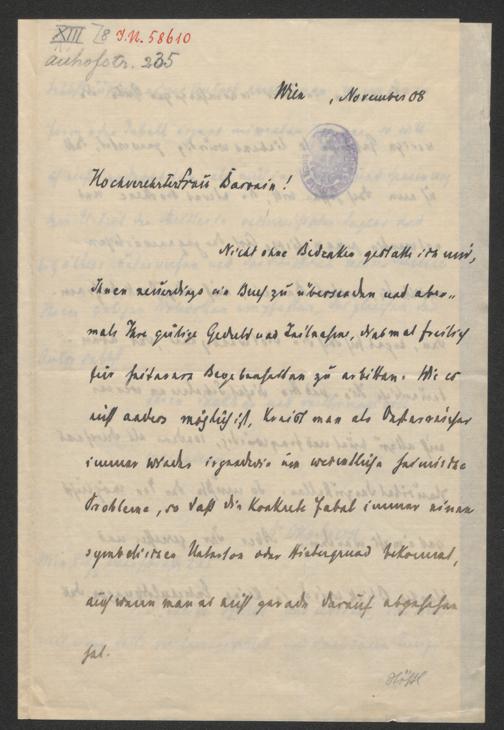 XIII 78 I.N. 58610
Auhofstr. 235
Wien , November 08
Hochverehrte Frau Baronin!
Nicht ohne Bedenken gestatte ich mir,
Ihnen neuerdings ein Buch zu übersenden und aber-
mals Ihre gütige Geduld und Teilnahme, diesmal freilich
für heiterere Begebenheiten zu erbitten. Wie es
nicht anders möglich ist, kreist man als Oesterreicher
immer wieder irgendwie um wesentliche heimische
Probleme, so daß die konkrete Fabel immer einen
symbolischen Unterton oder Hintergrund bekommt,
auch wenn man es nicht gerade darauf abgesehen
hat.